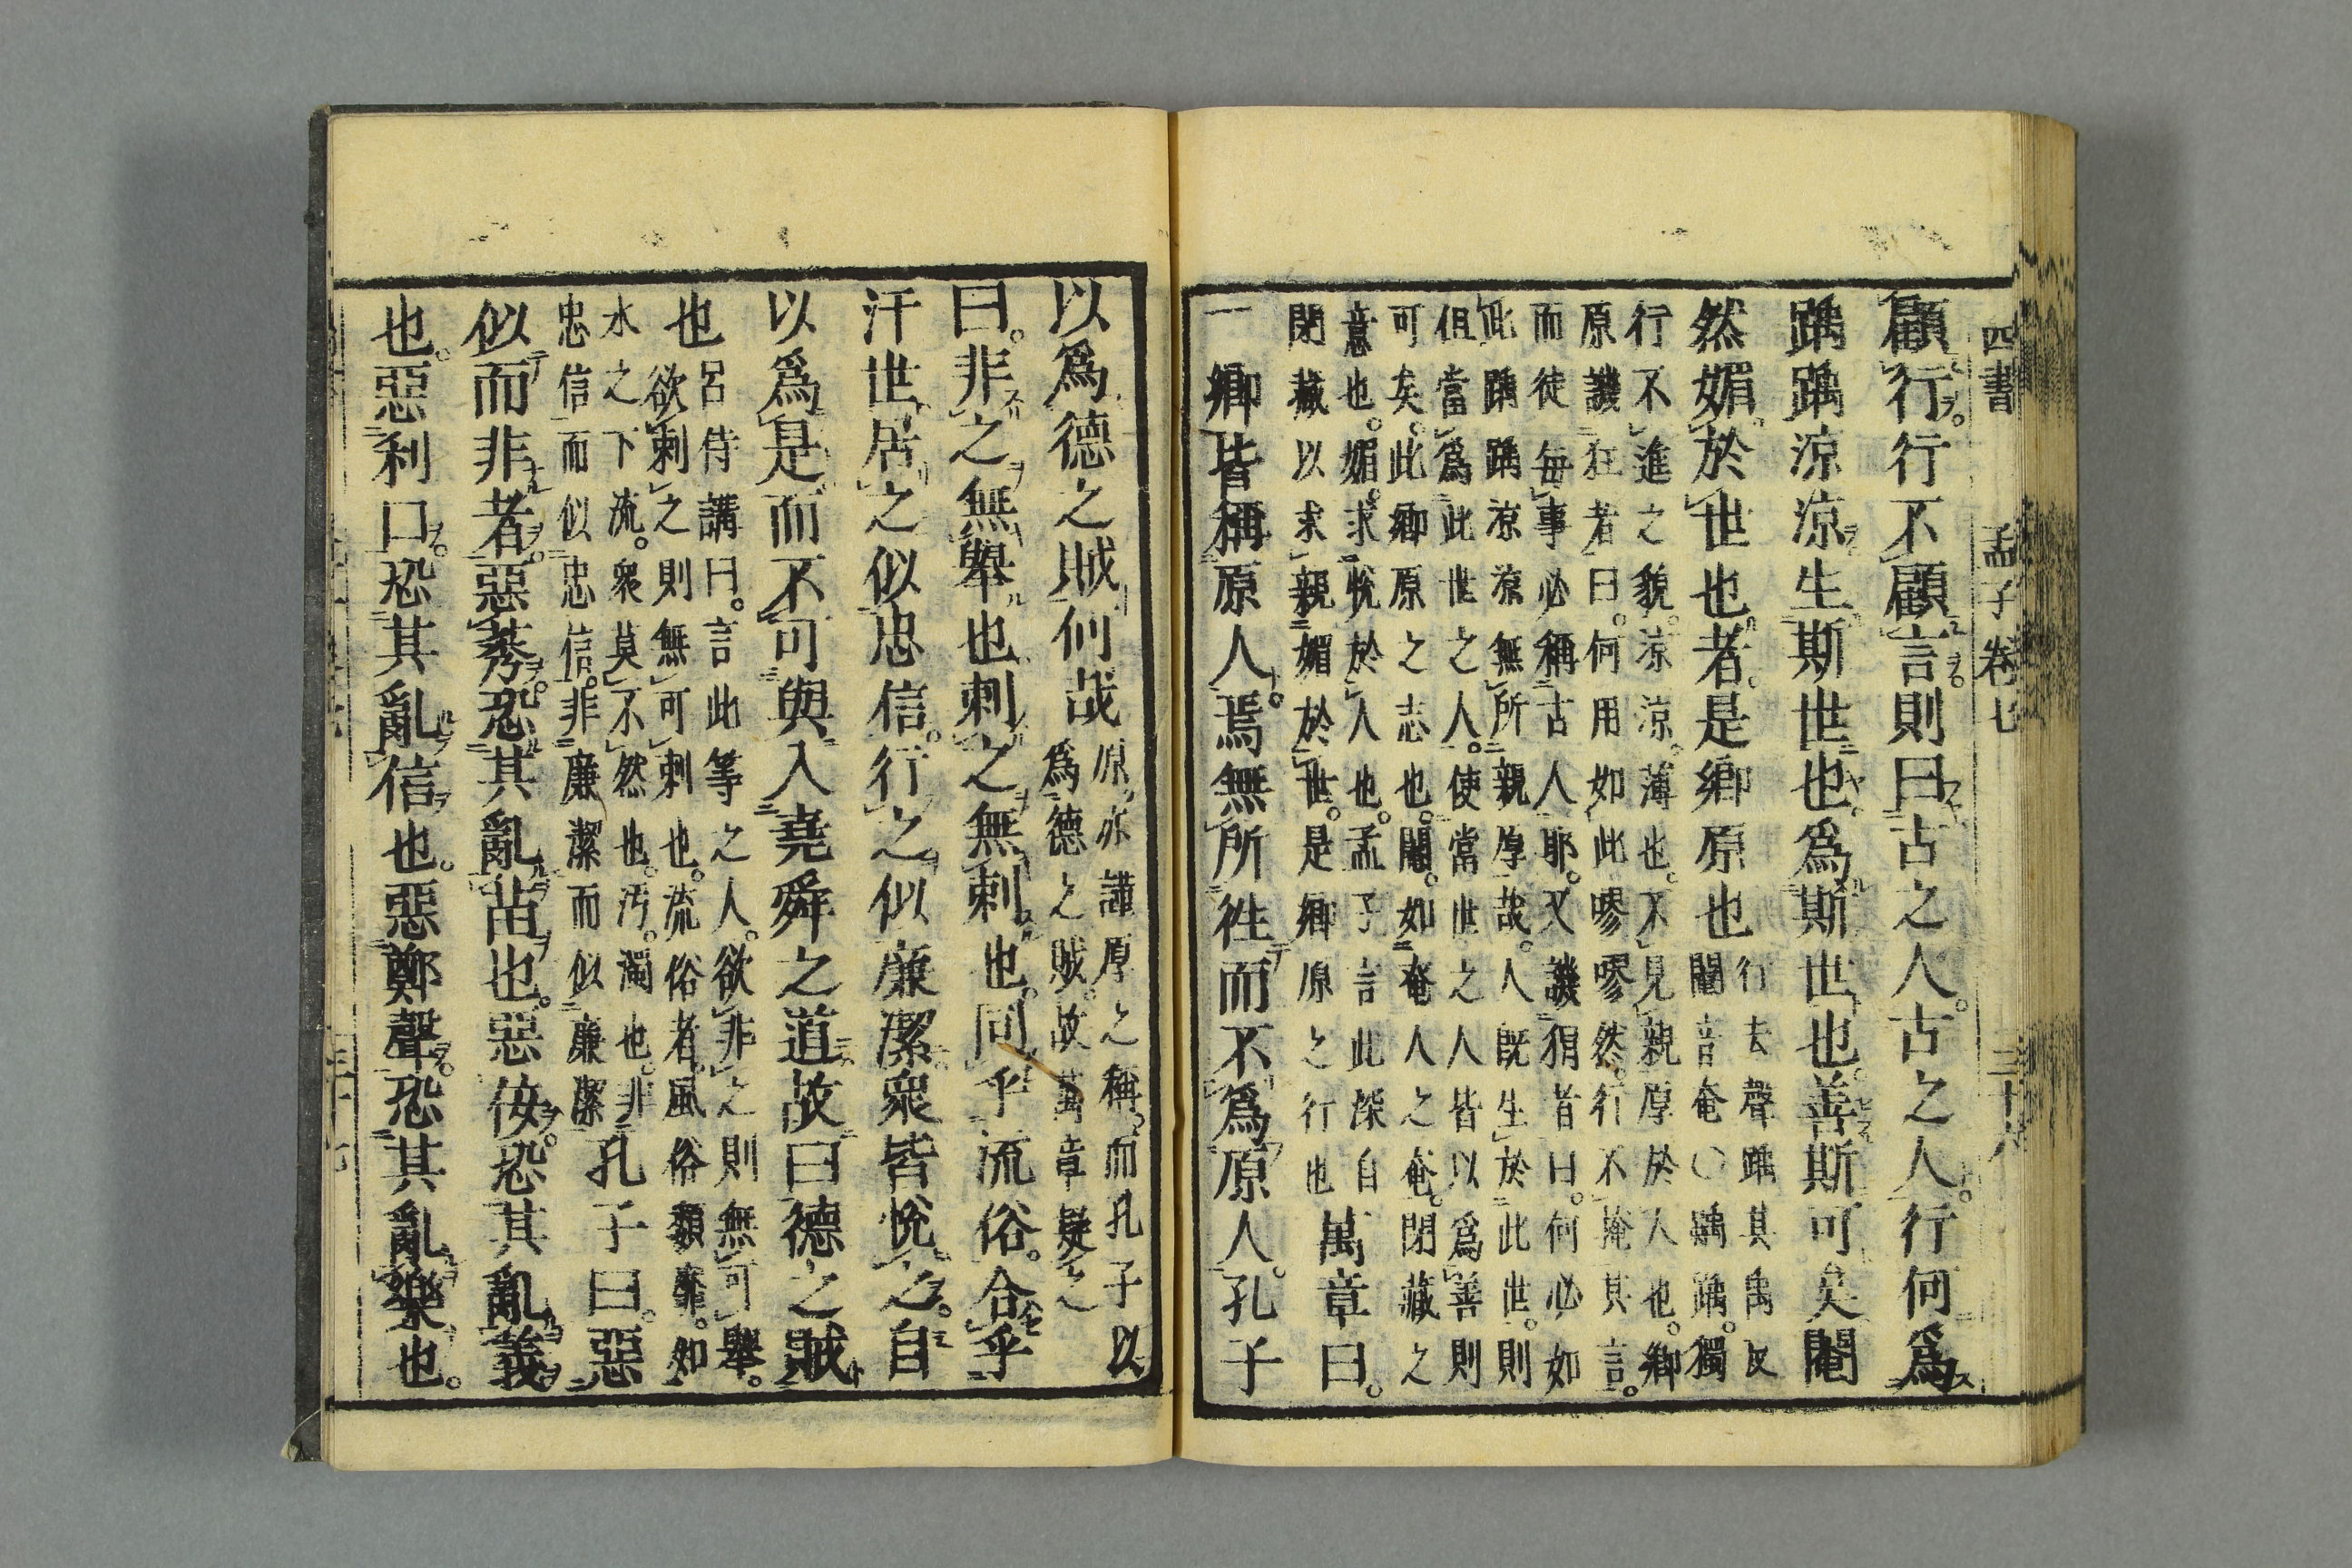 四書 孟子卷七 三十六
顧行。行不顧言。則曰古之人。古之人。行何爲
踽踽涼涼生斯世也。爲斯世也。善斯可矣閹
然媚於世也者。是鄉原也
行去聲踽其禹反
閹音奄〇踽踽。獨
行不進之貌。涼涼。薄也。不見親厚於人也。鄉
原譏狂者曰。何用如此嘐嘐然。行不掩其言。
而徒每事必稱古人耶。又譏狷者曰。何必如
此踽踽涼涼無所親厚哉。人旣生於此世。則
但當爲此世之人。使當世之人皆以爲善則
可矣。此鄉原之志也。閹。如奄人之奄。閉藏之
意也。媚。求悅於人也。孟子言此深自
閉藏以求親媚於世。是鄉原之行也
萬章曰。
一鄉皆稱原人。焉無所往而不爲原人。孔子
以爲德之賊何哉
原。亦謹厚之稱。而孔子以
爲德之賊。故萬章疑之
曰。非之無舉也刺之無刺也。同乎流俗。合乎
汙世居之似忠信。行之似廉潔衆皆悅之。自
以爲是而不可與入堯舜之道故曰德之賊
也
呂侍講曰。言此等之人。欲非之則無可舉。
欲刺之則無可刺也。流俗者。風俗頹靡。如
水之下流。衆莫不然也。汚。濁也。非
忠信而似忠信。非廉潔而似廉潔
孔子曰。惡
似而非者。惡莠。恐其亂苗也。惡佞。恐其亂義
也。惡利口。恐其亂信也。惡鄭聲。恐其亂樂也。